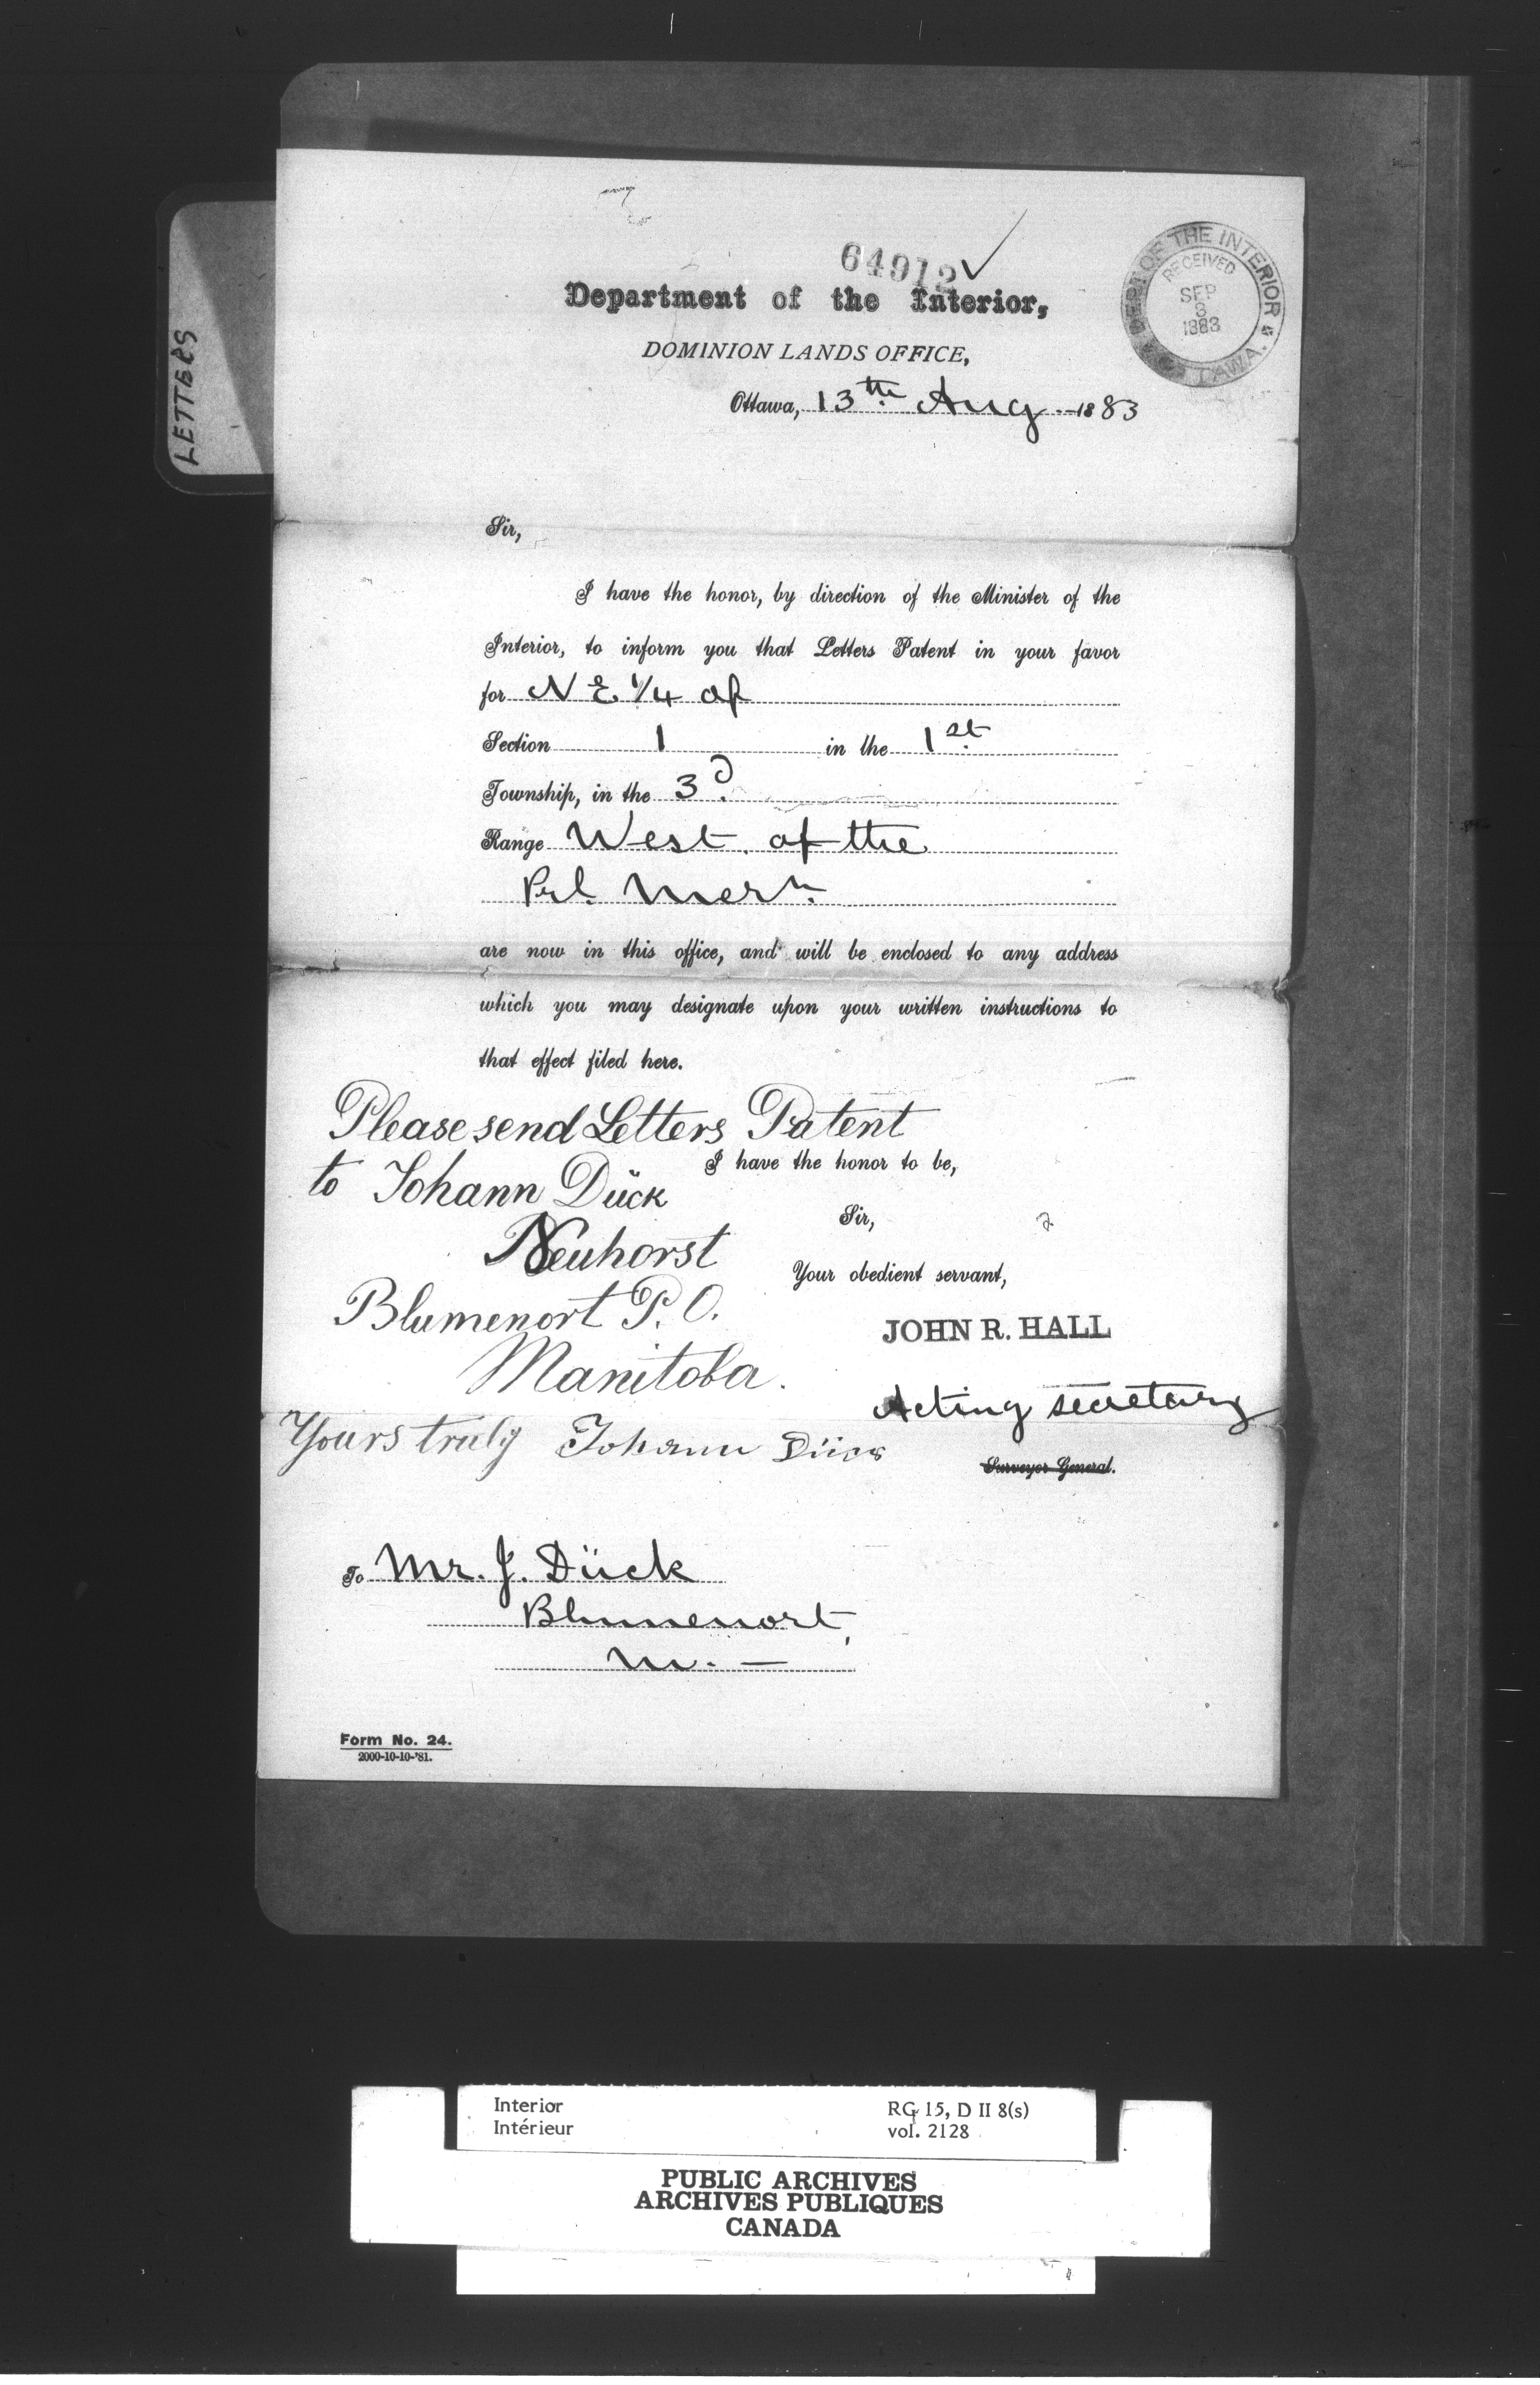 LETTERS
64912
Department of the Interior,
DEPT OF THE INTERIOR
RECEIVED
SEP
8
1883
OTTAWA.
DOMINION LANDS OFFICE,
Ottawa, 13th Aug. 1883
Sir,
I have the honor, by direction of the Minister of the
Interior, to inform you that Letters Patent in your favor
for N E 1/4 of
Section 1 in the 1st
Township, in the 3d
Range West of the
Prl. Mern.
are now in this office, and will be enclosed to any address
which you may designate upon your written instructions to
that effect filed here.
Please send Letters Patent
I have the honor to be,
to Johann Dück
Sir,
Neuhorst
Your obedient servant,
Blumenort P. O.
JOHN R. HALL
Manitoba.
Acting secretary
Yours truly Johann Dück
Surveyor General.
To Mr. J. Dück
Blumenort,
M. —
Form No. 24.
2000-10-10-'81.
Interior RG 15, D II 8(s)
Intérieur vol. 2128
PUBLIC ARCHIVES
ARCHIVES PUBLIQUES
CANADA